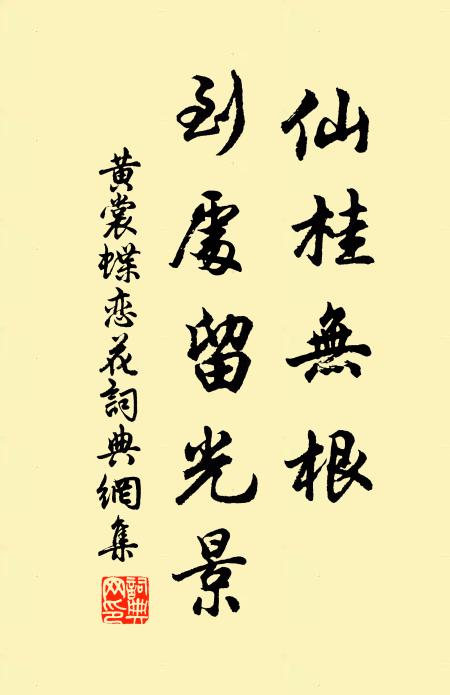 仙桂無根
到處留光景
黄裳蝶恋花詞典網集
詞典网印